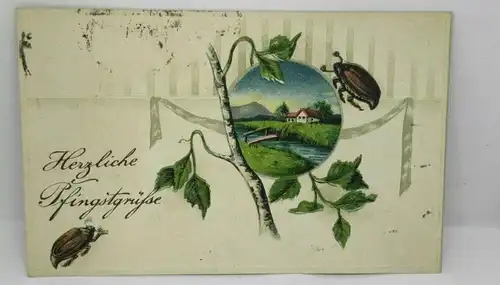 Herzliche
Pfingstgrüße